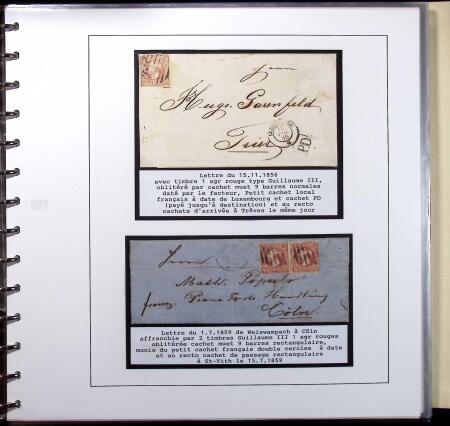 Herrn
Hugo Garenfeld
Trier
PD
Lettre du 15.11.1856
avec timbre 1 sgr rouge type Guillaume III,
oblitéré par cachet muet 9 barres normales
daté par le facteur, Petit cachet local
français à date de Luxembourg et cachet PD
(payé jusqu'à destination) et au recto
cachets d'arrivée à Trèves le même jour
Herrn
Math.
franco Piano Forte Handlung
Cöln
Lettre du 1.7.1859 de Weiswampach à Cöln
affranchie par 2 timbres Guillaume III 1 sgr rouges
oblitérée cachet muet 9 barres rectangulaire,
munie du petit cachet français double cercles à date
et au recto cachet de passage rectangulaire
à St-Vith le 15.7.1859